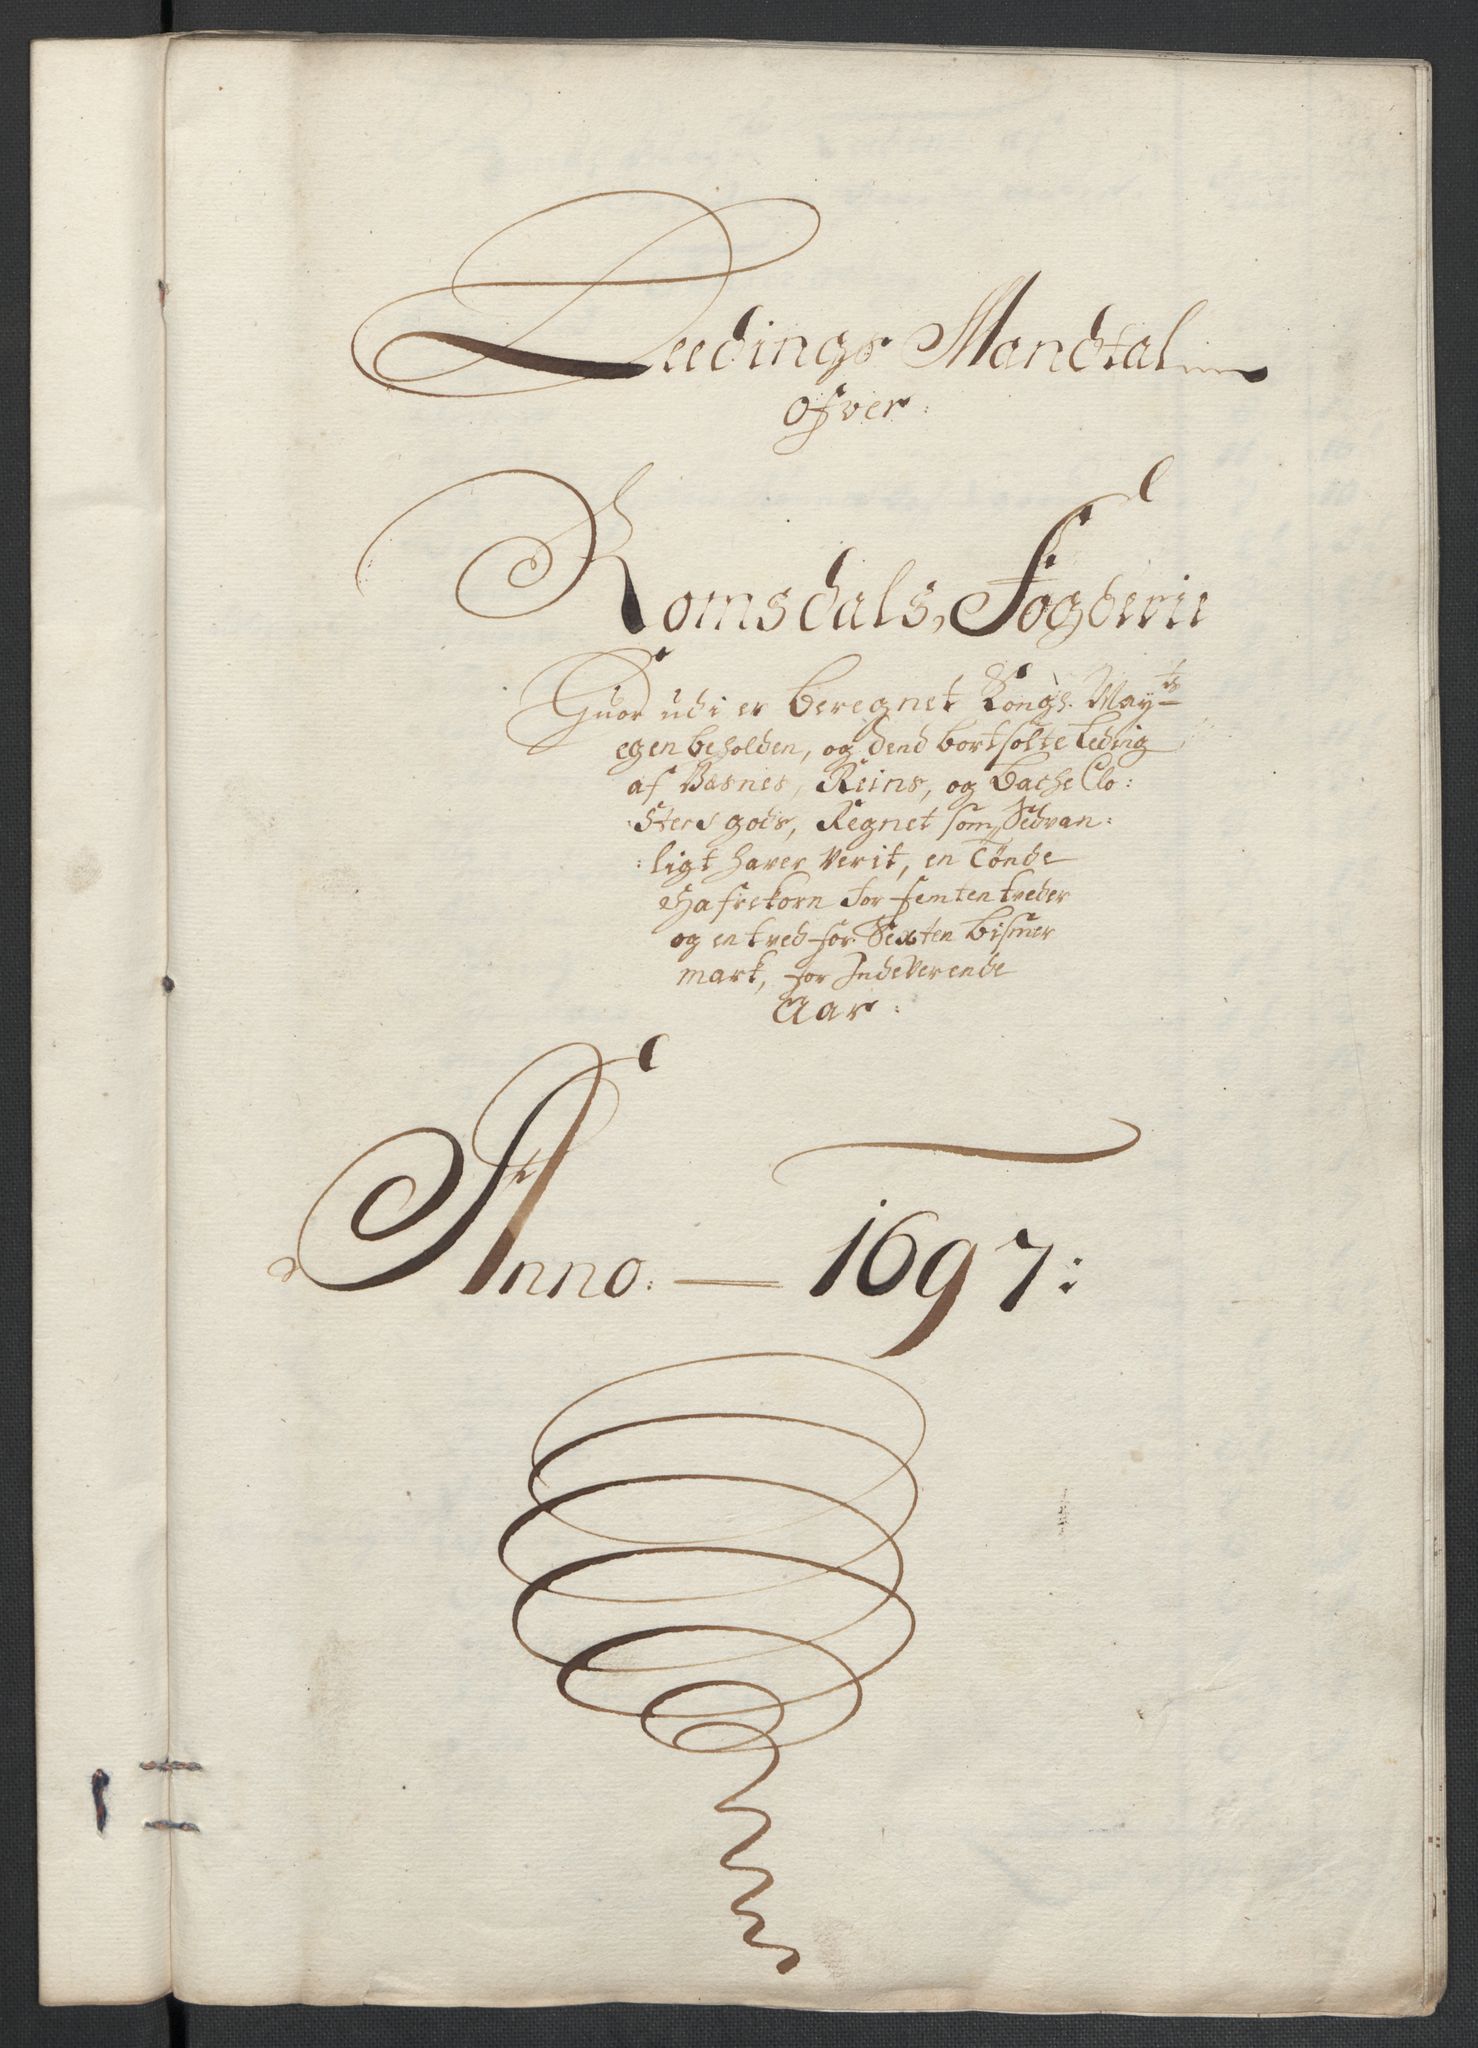 Leedings Mandtal
ofver:
Romsdals, Fogderie
Huor udi er beregnet Kongs. Mayts
egen beholden, og dend bortsolte Leding
af Basnes, Reins, og Bache Clo:
sters gods, Regnet som Sedvan:
:ligt haver Verit, en Tønde
Hafrekorn for femten kveder
og en kved for Sexten bismer
mark, for Indeverende
Aar:
Anno: — 1697: